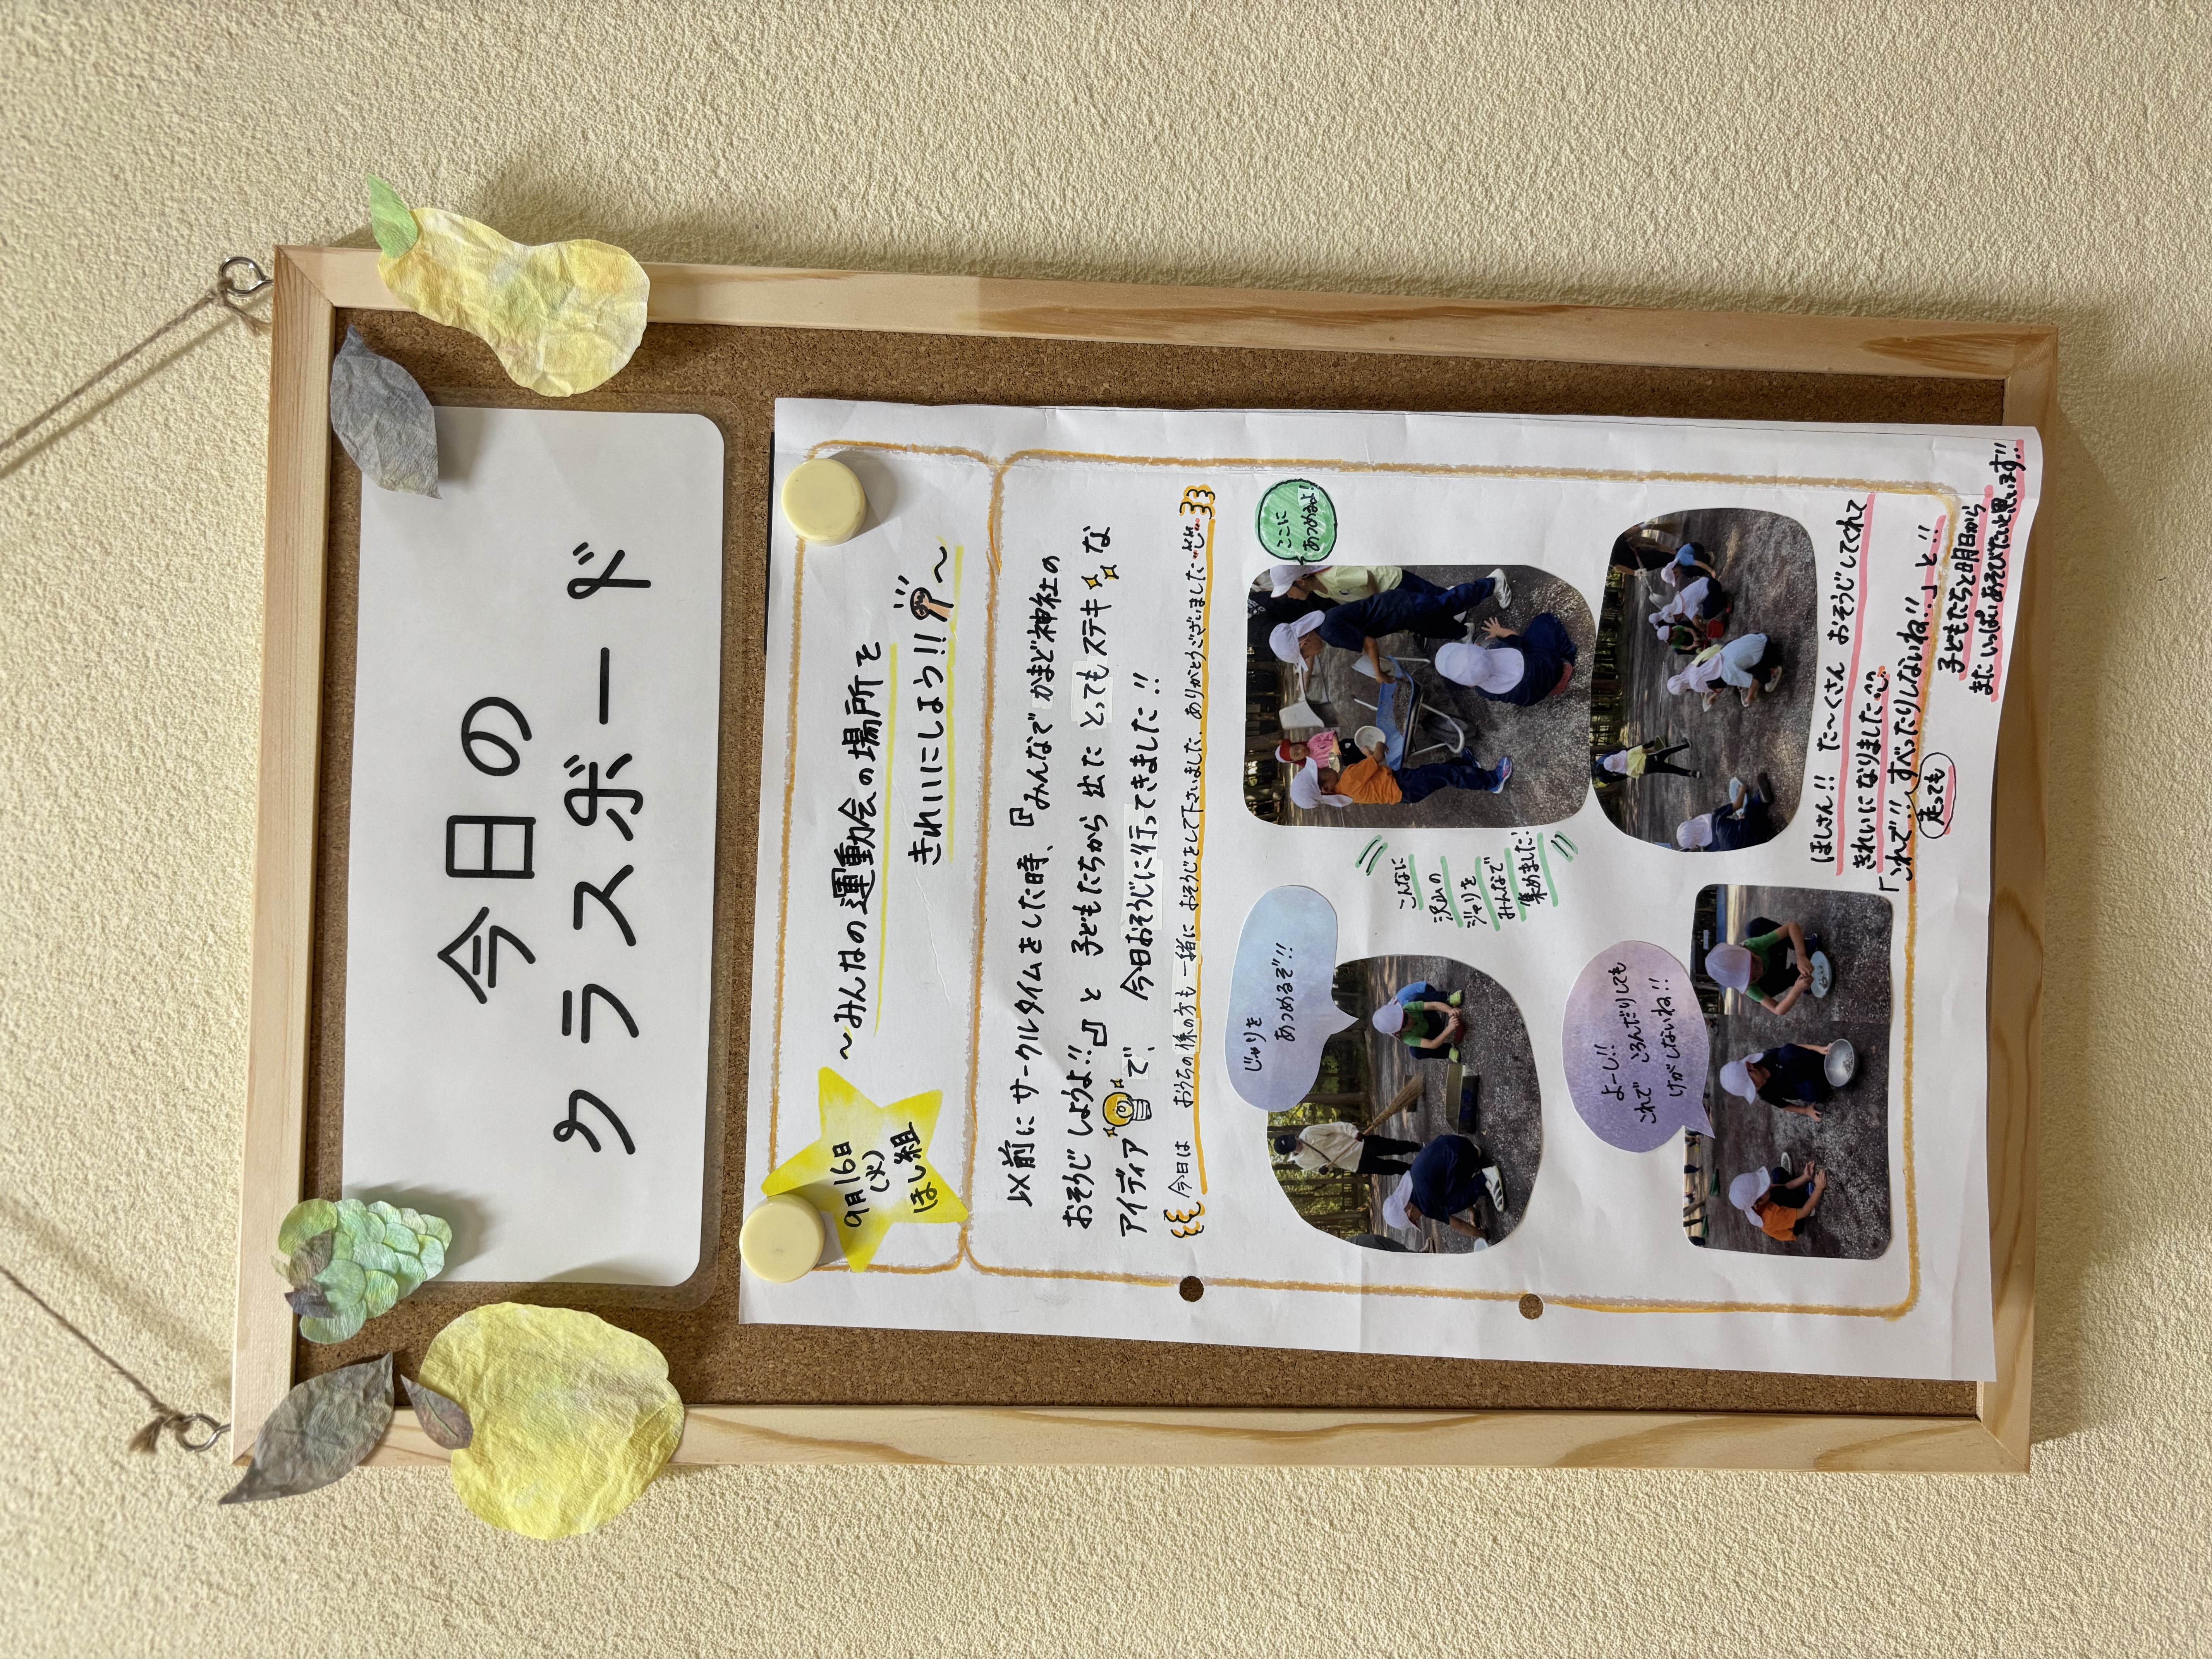 今日の
クラスボード
9月16日
(火)
ほし組
〜みんなの運動会の場所を
きれいにしよう!!〜
以前に サークルタイムをした時、『みんなで かまど神社の
おそうじ しようよ!!』と 子どもたちから 出た とっても ステキ な
アイディア で、 今日おそうじに行ってきました!!
今日は おうちの係の方も一緒に おそうじをして下さいました。ありがとうございました
じゃりを
あつめるぞ!!
こんなに
沢山の
ジャリを
みんなで
集めました
ここに
あつめるよ!
よーし!!
これで ころんだりしても
けがしないね!!
ほしさん!! た〜くさん おそうじしてくれて
きれいになりました
「これで!! すべったりしないね!!」と!!
走っても
子どもたちと明日から
またいっぱいあそびたいと思います!!